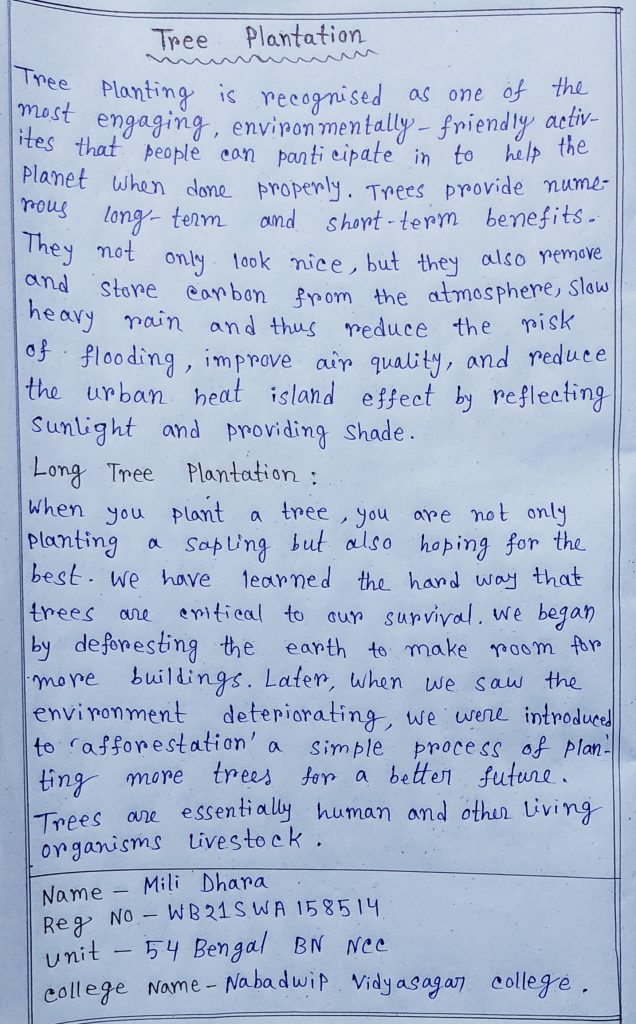 Tree Plantation
Tree Planting is recognised as one of the
most engaging, environmentally-friendly activ-
ites that people can participate in to help the
Planet when done properly. Trees provide nume-
rous long-term and short-term benefits.
They not only look nice, but they also remove
and store carbon from the atmosphere, slow
heavy rain and thus reduce the risk
of flooding, improve air quality, and reduce
the urban heat island effect by reflecting
Sunlight and providing shade.
Long Tree Plantation :
When you plant a tree, you are not only
planting a sapling but also hoping for the
best. We have learned the hard way that
trees are critical to our survival. We began
by deforesting the earth to make room for
more buildings. Later, when we saw the
environment deteriorating, we were introduced
to 'afforestation' a simple process of plan-
ting more trees for a better future.
Trees are essentially human and other living
organisms livestock.
Name - Mili Dhara
Reg No - WB21SWA158514
unit - 54 Bengal BN NCC
college Name - Nabadwip Vidyasagar college.